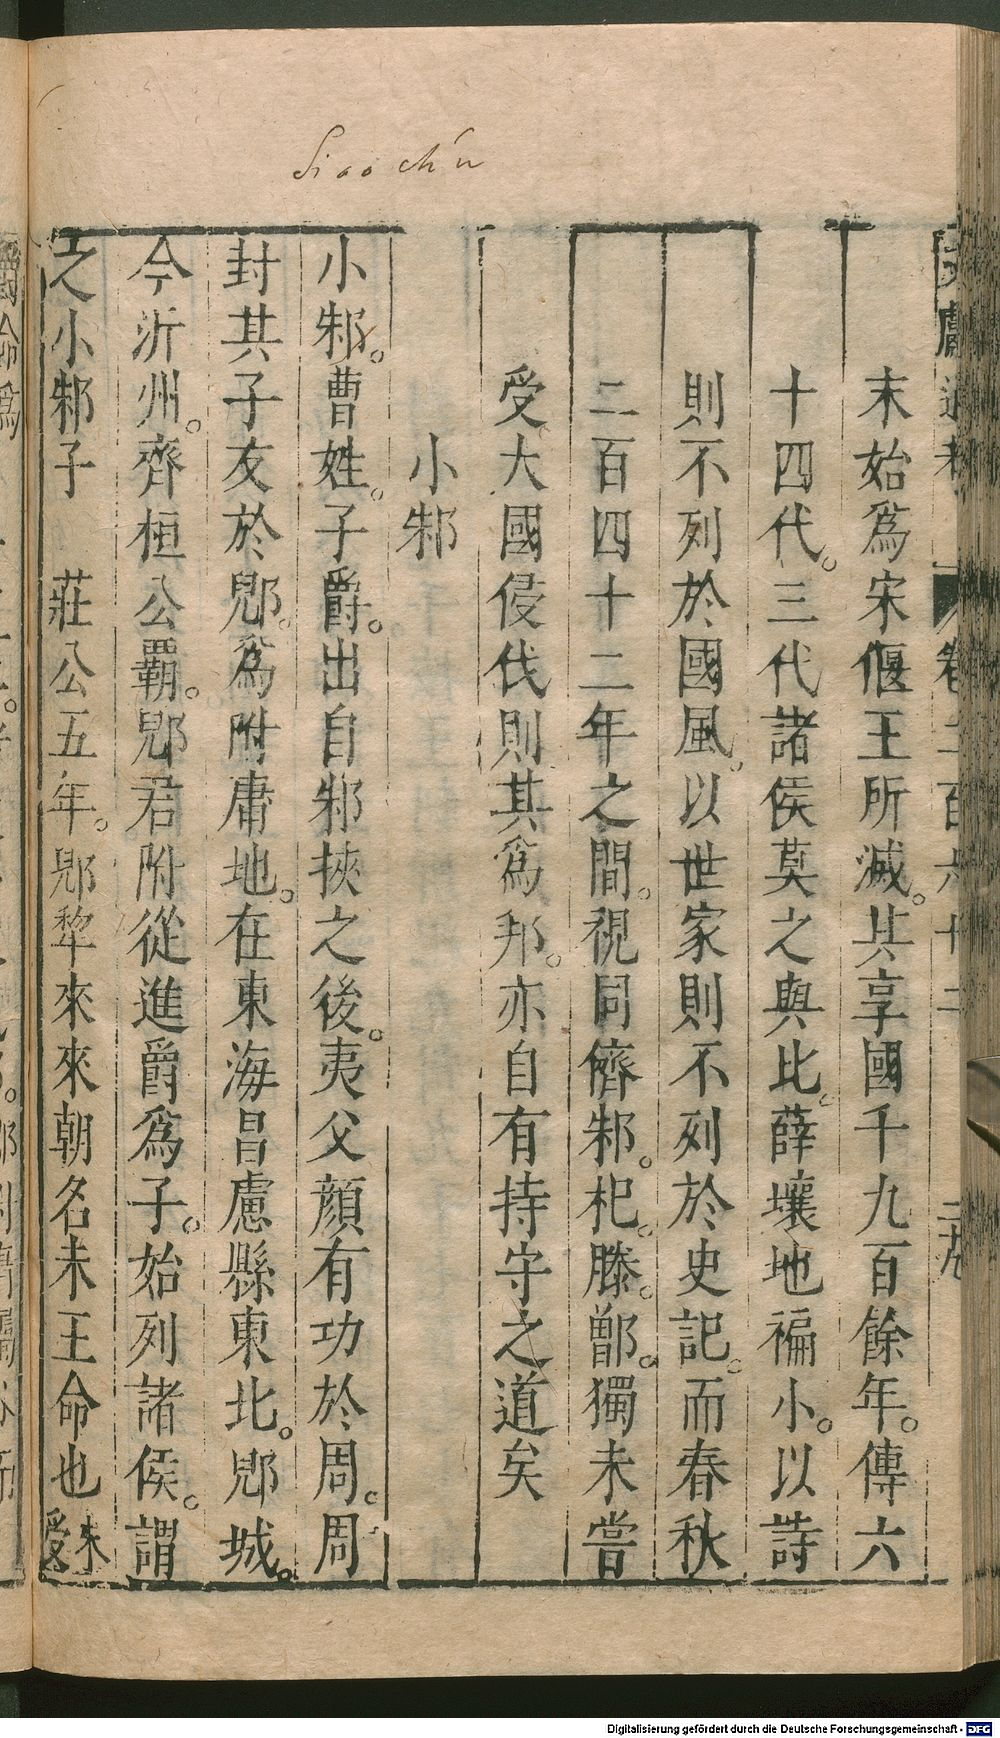 Siao chʹu
末始爲宋偃王所滅。其享國千九百餘年。傳六
十四代。三代諸侯莫之與比。薛壤地褊小。以詩
則不列於國風。以世家則不列於史記。而春秋
二百四十二年之間。視同儕邾。杞。滕。鄫。獨未嘗
受大國侵伐則其爲邦。亦自有持守之道矣
小邾
小邾。曹姓。子爵。出自邾挾之後。夷父顔有功於周。周
封其子友於郳。爲附庸地。在東海昌慮縣東北。郳城。
今沂州。齊桓公霸。郳君附從進爵爲子。始列諸侯。謂
之小邾子 莊公五年。郳犂來來朝名未王命也未受
卷二百六十二
二九
Digitalisierung gefördert durch die Deutsche Forschungsgemeinschaft - DFG